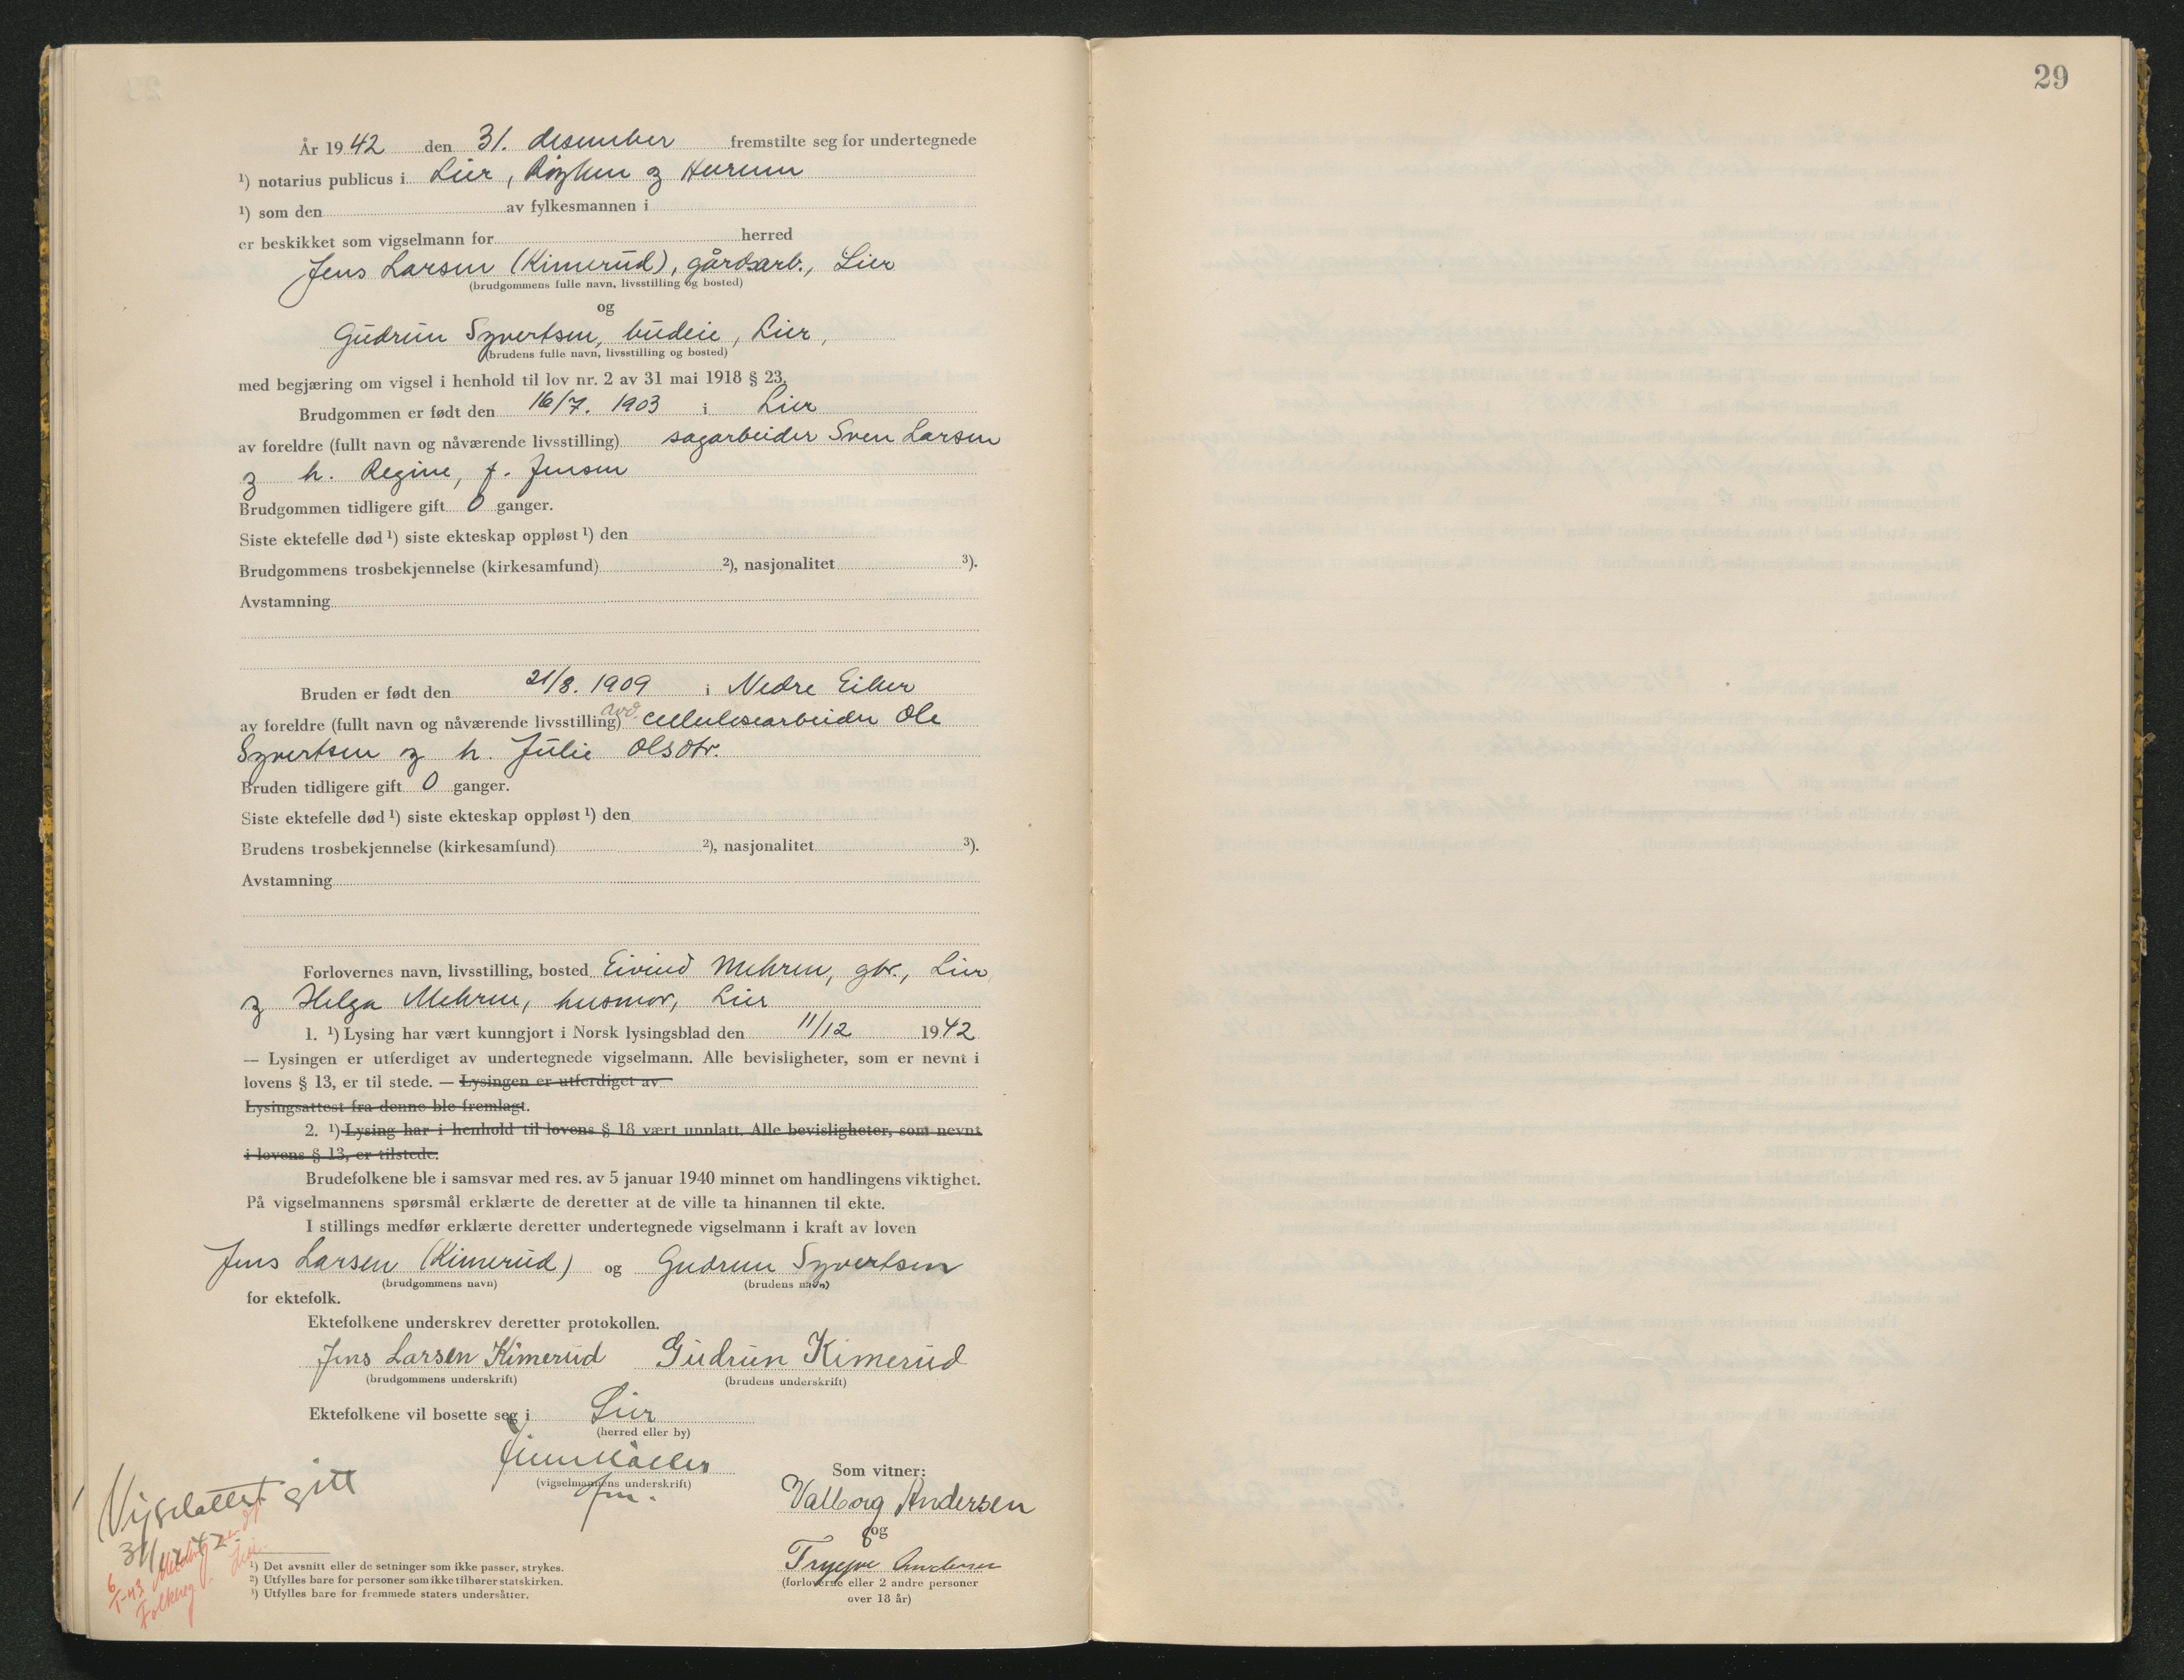 29
År 1942 den 31. desember fremstilte seg for undertegnede
¹) notarius publicus i Lier, Røyken og Hurum
¹) som den av fylkesmannen i
er beskikket som vigselmann for herred
Jens Larsen (Kimerud), gårdsarb., Lier
(brudgommens fulle navn, livsstilling og bosted)
og
Gudrun Syvertsen, budeie, Lier,
(brudens fulle navn, livsstilling og bosted)
med begjæring om vigsel i henhold til lov nr. 2 av 31 mai 1918 § 23.
Brudgommen er født den 16/7. 1903 i Lier
av foreldre (fullt navn og nåværende livsstilling) sagarbeider Sven Larsen
og h. Regine, f. Jensen
Brudgommen tidligere gift 0 ganger.
Siste ektefelle død ¹) siste ekteskap oppløst ¹) den
Brudgommens trosbekjennelse (kirkesamfund) ²), nasjonalitet ³).
Avstamning
Bruden er født den 21/8. 1909 i Nedre Eiker
av foreldre (fullt navn og nåværende livsstilling) avd. cellulosearbeider Ole
Syvertsen og h. Julie Olsdtr.
Bruden tidligere gift 0 ganger.
Siste ektefelle død ¹) siste ekteskap oppløst ¹) den
Brudens trosbekjennelse (kirkesamfund) ²), nasjonalitet ³).
Avstamning
Forlovernes navn, livsstilling, bosted Eivind Mehren, gbr., Lier
og Helga Mehren, husmor, Lier
1. ¹) Lysing har vært kunngjort i Norsk lysingsblad den 11/12 1942
— Lysingen er utferdiget av undertegnede vigselmann. Alle bevisligheter, som er nevnt i
lovens § 13, er til stede. — Lysingen er utferdiget av
Lysingsattest fra denne ble fremlagt.
2. ¹) Lysing har i henhold til lovens § 18 vært unnlatt. Alle bevisligheter, som nevnt
i lovens § 13, er tilstede.
Brudefolkene ble i samsvar med res. av 5 januar 1940 minnet om handlingens viktighet.
På vigselmannens spørsmål erklærte de deretter at de ville ta hinannen til ekte.
I stillings medfør erklærte deretter undertegnede vigselmann i kraft av loven
Jens Larsen (Kimerud) og Gudrun Syvertsen
(brudgommens navn) (brudens navn)
for ektefolk.
Ektefolkene underskrev deretter protokollen.
Jens Larsen Kimerud Gudrun Kimerud
(brudgommens underskrift) (brudens underskrift)
Ektefolkene vil bosette seg i Lier
(herred eller by)
(vigselmannens underskrift)
fm.
Som vitner:
Valborg Andersen
og
Trygve Andersen
(forloverne eller 2 andre personer
over 18 år)
Vigselattest gitt
31/12 42
6/1-43 Melding
Folkereg. Lier.
¹) Det avsnitt eller de setninger som ikke passer, strykes.
²) Utfylles bare for personer som ikke tilhører statskirken.
³) Utfylles bare for fremmede staters undersåtter.